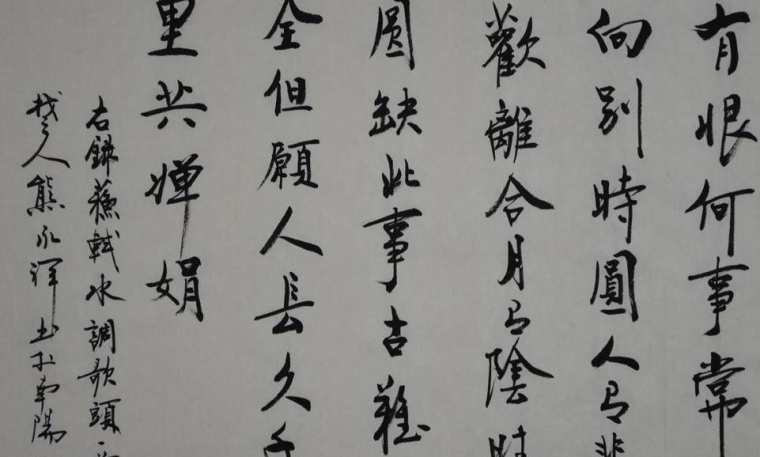 有恨何事常
向别時圓人有悲
歡離合月有陰晴
圓缺此事古難
全但願人長久千
里共嬋娟
右錄蘇軾水調歌頭
楚人熊永輝書於南陽